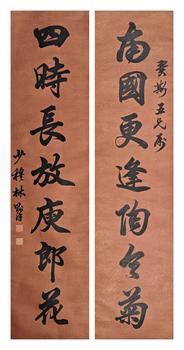 南國更逢陶令菊
四時長放庾郎花
少穆林則徐